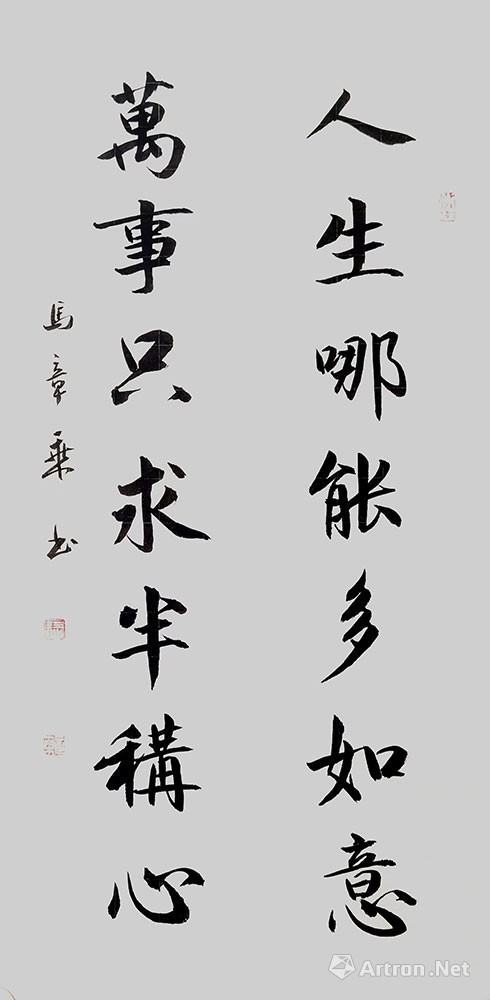 人生哪能多如意
萬事只求半稱心
馬章乘书
Artron.Net